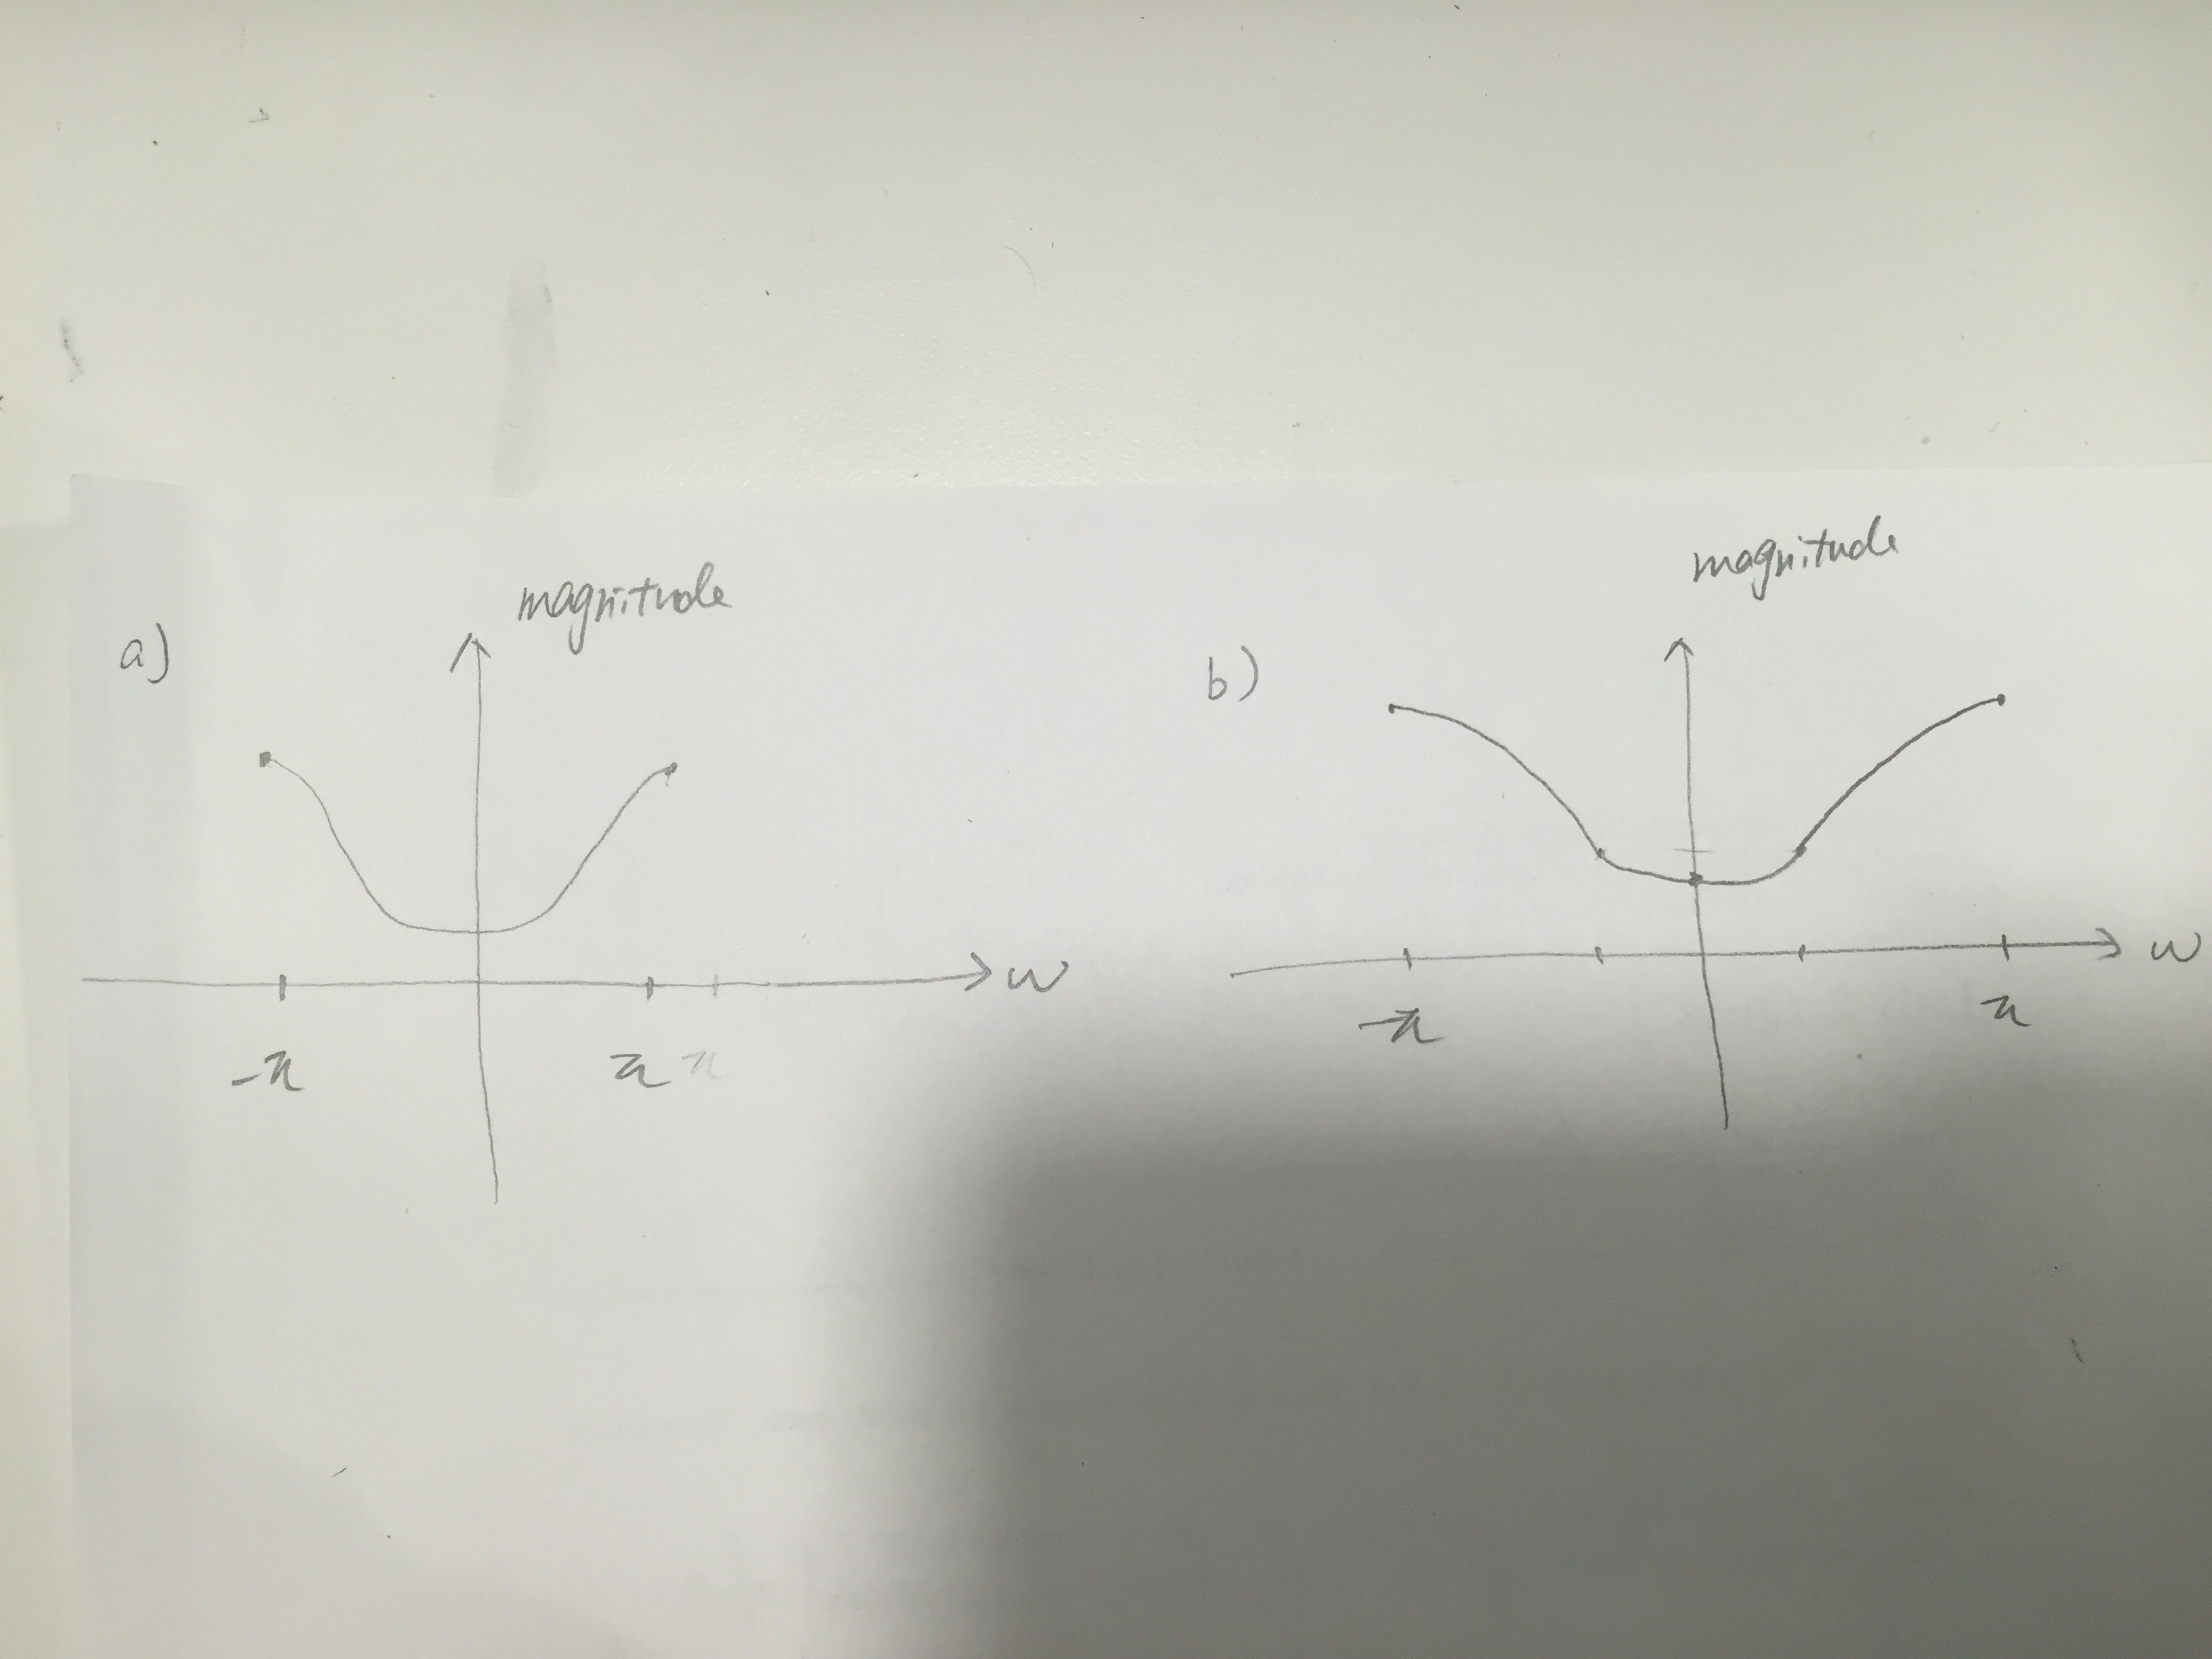 a)
magnitude
w
-π
π π
b)
magnitude
w
-π
π